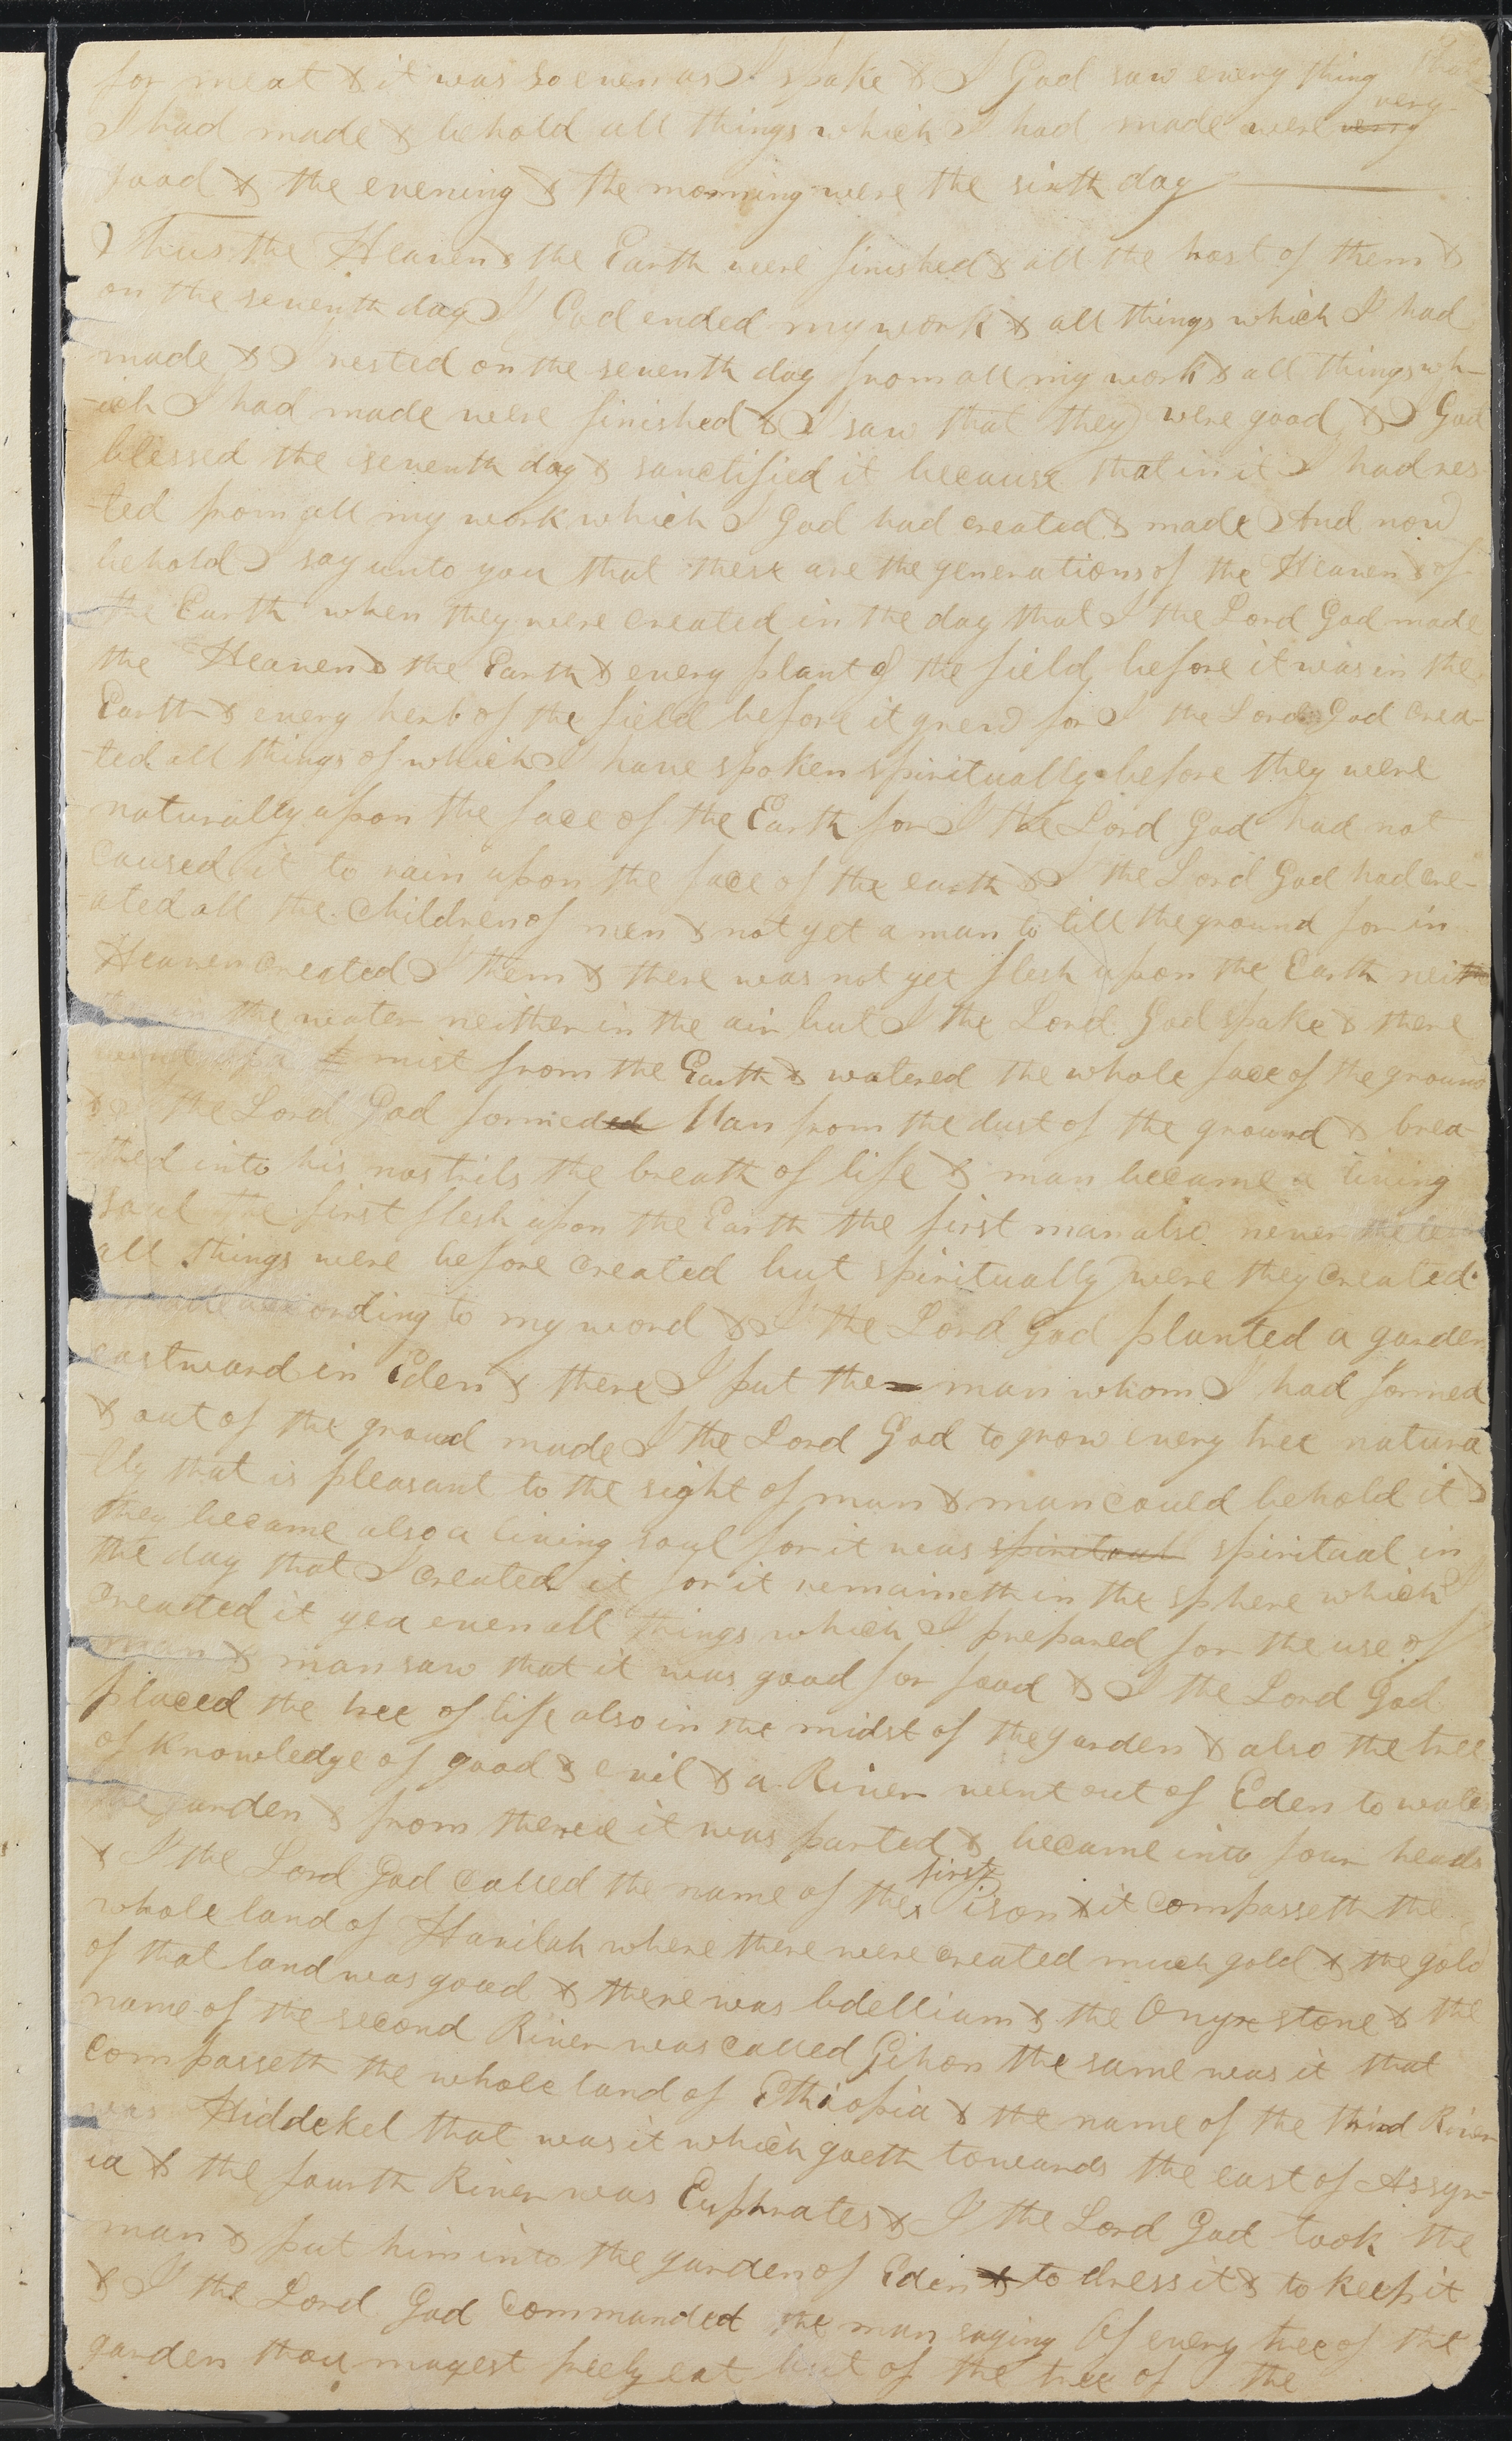 for meat & it was so even as I spake & I God saw every thing that
very
I had made & behold all things which I had made were very
good & the evening & the morning were the sixth day
Thus the Heaven & the Earth were finished & all the host of them &
on the seventh day I God ended my work & all things which I had
made & I rested on the seventh day from all my work & all things wh-
-ich I had made were finished & I saw that they were good & I God
blessed the seventh day & sanctified it because that in it I had res
-ted from all my work which I God had created & made And now
behold I say unto you that these are the generations of the Heaven & of
the Earth when they were created in the day that I the Lord God made
the Heaven & the Earth & every plant of the field before it was in the
Earth & every herb of the field before it grew for I the Lord God crea-
-ted all things of which I have spoken spiritually before they were
naturally upon the face of the Earth for I the Lord God had not
caused it to rain upon the face of the earth & I the Lord God had cre-
-ated all the children of men & not yet a man to till the ground for in
Heaven created I them & there was not yet flesh upon the Earth neith
in the water neither in the air but I the Lord God spake & there
went up a mist from the Earth & watered the whole face of the ground
& I the Lord God formeded Man from the dust of the ground & brea-
-thed into his nostrils the breath of life & man became a living
soul the first flesh upon the Earth the first man also never the less
all things were before created but spiritually were they created
made according to my word & I the Lord God planted a garden
eastward in Eden & there I put the man whom I had formed
& out of the ground made I the Lord God to grow every tree natura
-lly that is pleasant to the sight of man & man could behold it &
they became also a living soul for it was spiritual spiritual in
the day that I created it for it remaineth in the sphere which I
created it yea even all things which I prepared for the use of
man & man saw that it was good for food & I the Lord God
placed the tree of life also in the midst of the garden & also the tree
of knowledge of good & evil & a River went out of Eden to water
the garden & from thence it was parted & became into four heads
first
& I the Lord God called the name of the Pison & it compasseth the
whole land of Havilah where there were created much gold & the gold
of that land was good & there was bdellium & the Onyx stone & the
name of the second River was called Gihon the same was it that
compasseth the whole land of Ethiopia & the name of the third River
was Hiddekel that was it which goeth towards the east of Assyr-
ia & the fourth River was Euphrates & I the Lord God took the
man & put him into the garden of Eden & to dress it & to keep it
& I the Lord God commanded the man saying Of every tree of the
garden thou mayest freely eat but of the tree of the